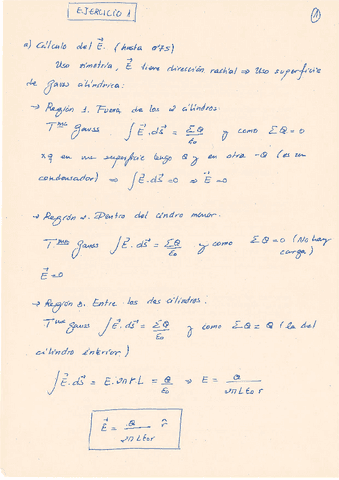 EJERCICIO 1
1
a) Cálculo del E⃗. (hasta 0'75)
Uso simetría, E⃗ tiene dirección radial ⇒ Uso superficie
de gauss cilíndrica:
→ Región 1. Fuera de los 2 cilindros.
Tma Gauss ∫E⃗.ds⃗ = ΣQ/ε₀ y como ΣQ=0
xq en una superficie tengo Q y en otra -Q (es un
condensador) ⇒ ∫E⃗.ds⃗=0 ⇒ E⃗=0
→ Región 2. Dentro del cilindro menor.
Tma Gauss ∫E⃗.ds⃗ = ΣQ/ε₀ y como ΣQ=0 (No hay
carga)
E⃗=0
→ Región 3. Entre los dos cilindros:
Tma gauss ∫E⃗.ds⃗ = ΣQ/ε₀ y como ΣQ = Q (la del
cilindro interior)
∫E⃗.ds⃗ = E.2π r L = Q/ε₀ ⇒ E = Q/2πLε₀r
E⃗ = Q/2πLε₀r r̂